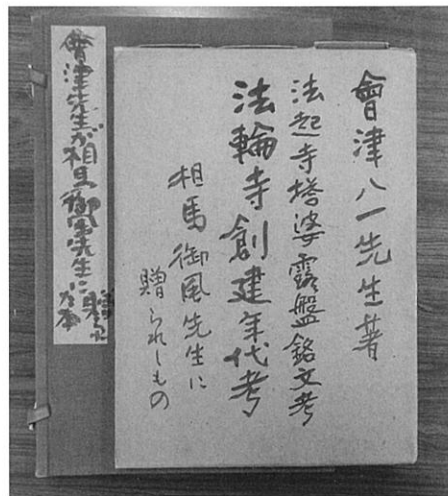 會津八一先生著
法起寺塔婆露盤銘文考
法輪寺創建年代考
相馬御風先生に
贈られしもの
會津先生が相馬御風先生に
贈られた本